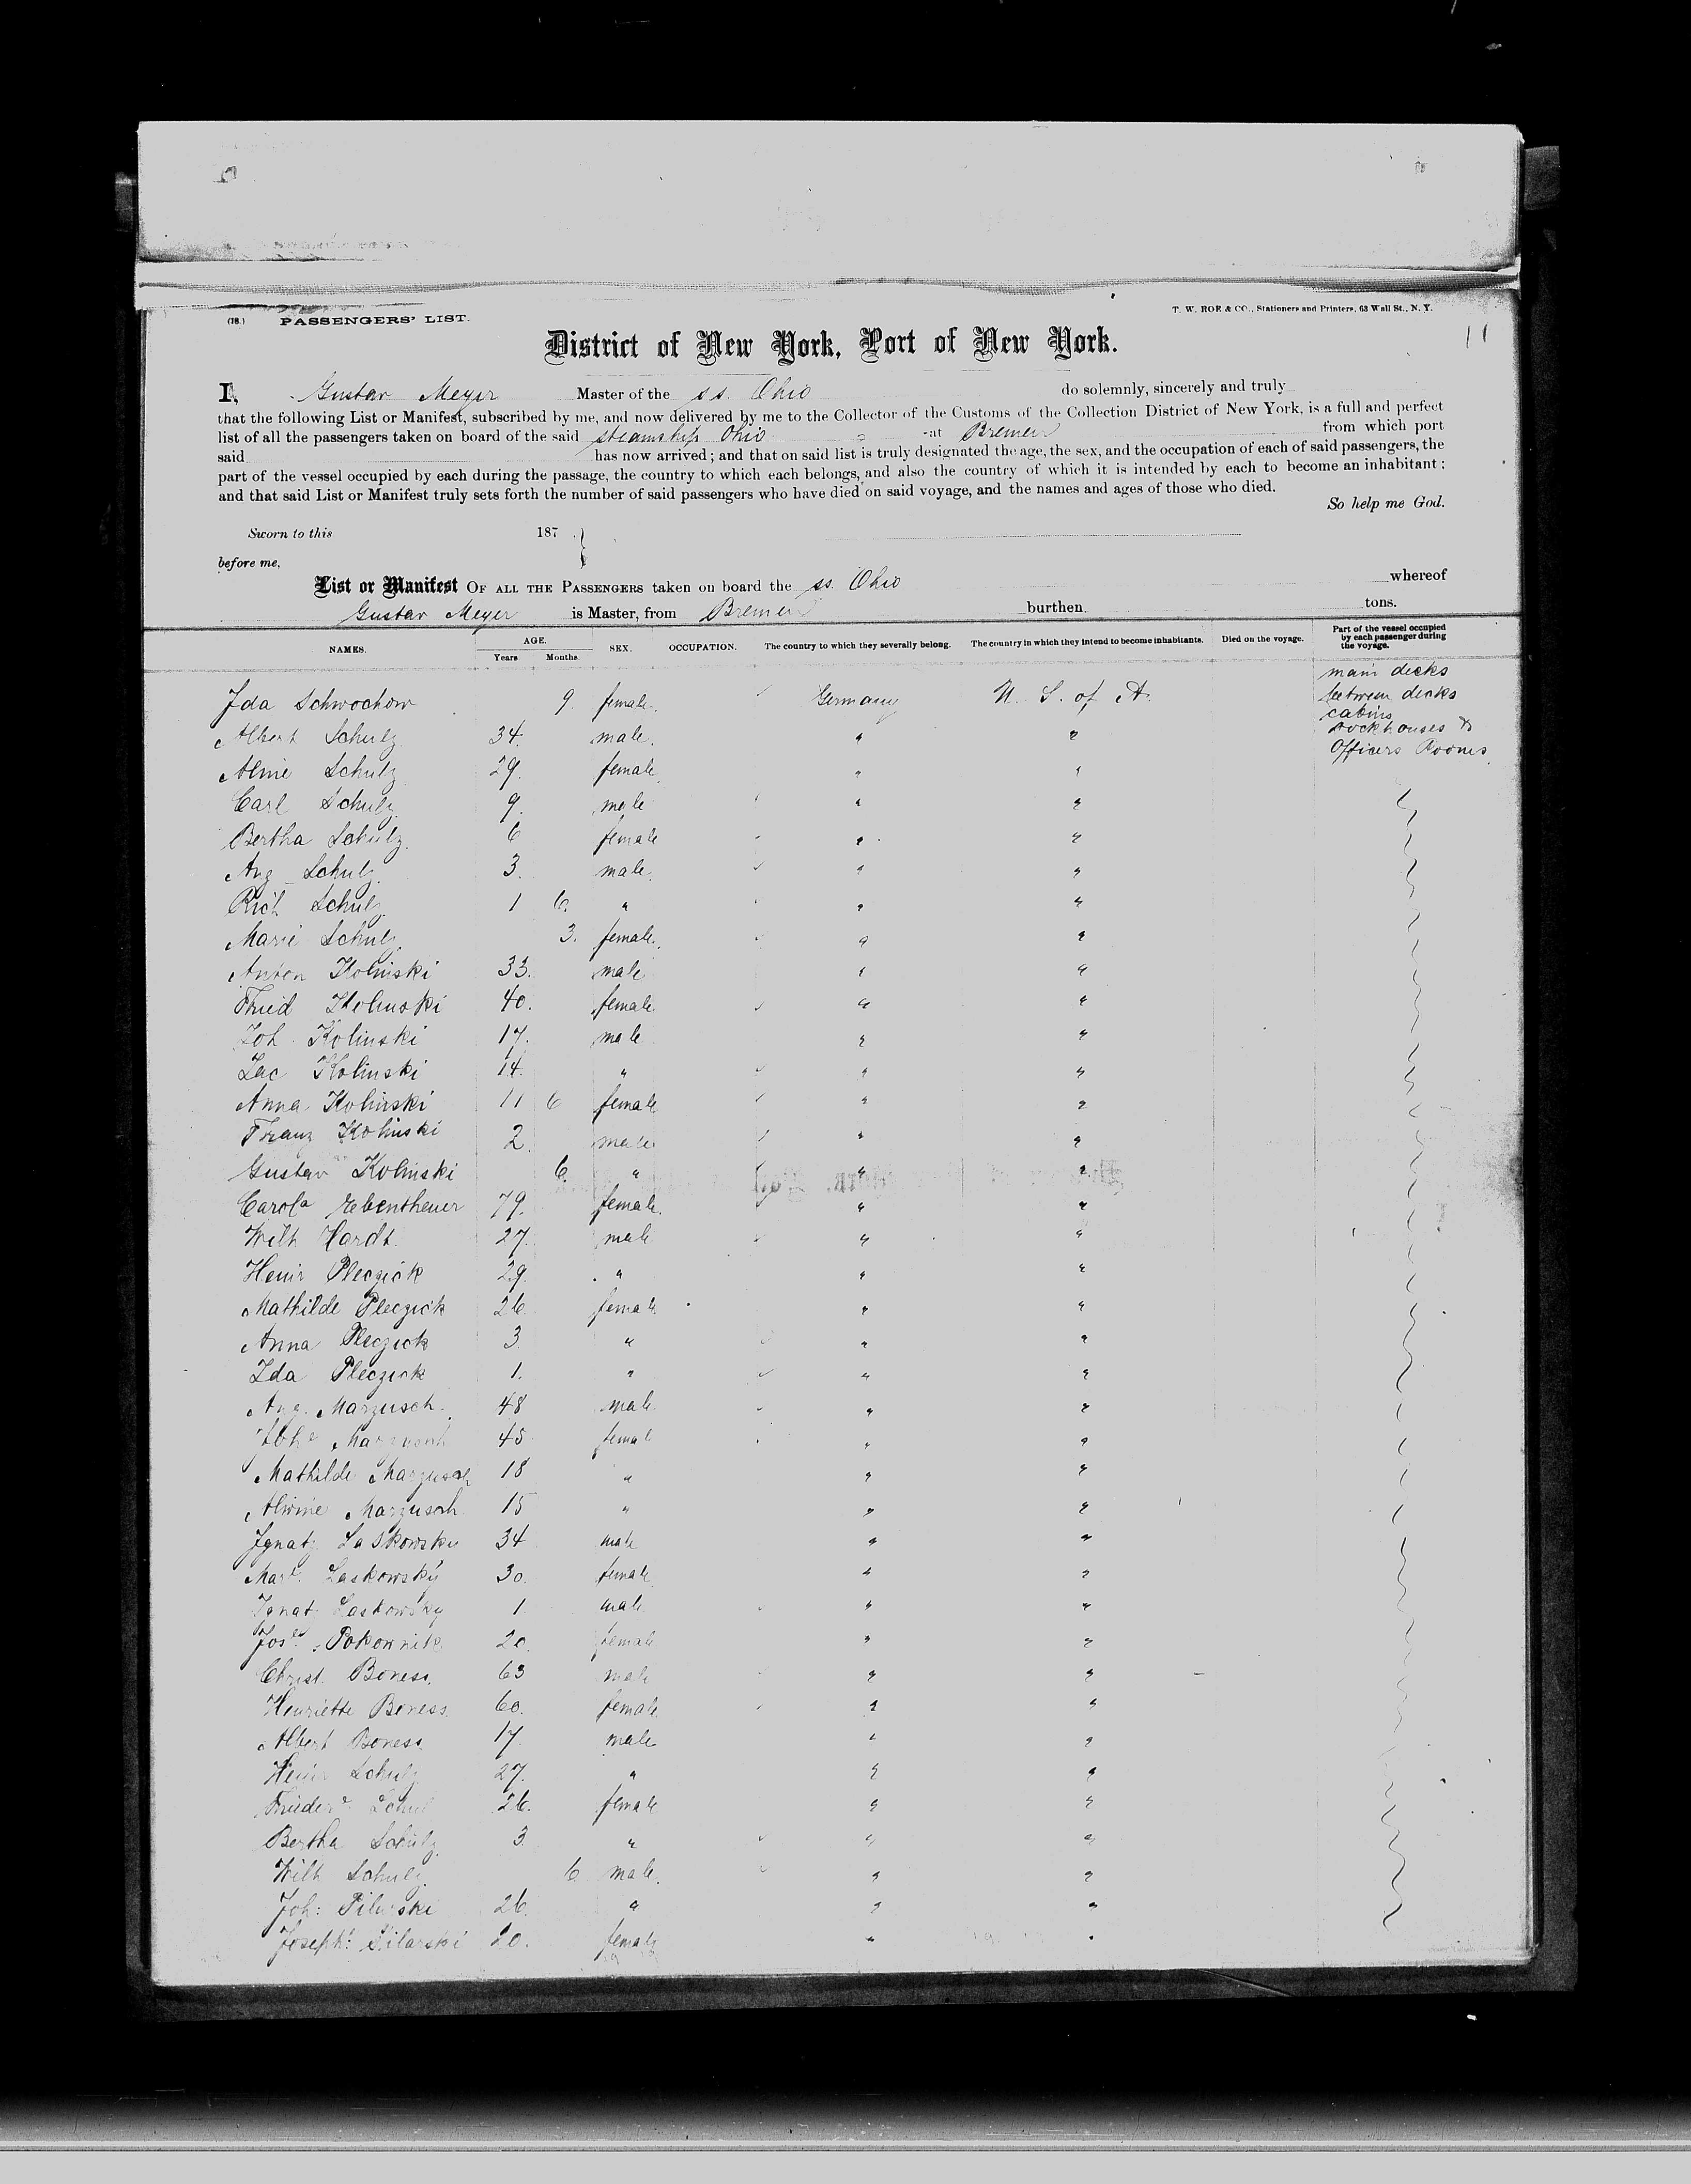 (18.) PASSENGERS' LIST.
T. W. ROE & CO., Stationers and Printers, 63 Wall St., N. Y.
11
District of New York, Port of New York.
I, Gustav Meyer Master of the ss. Ohio do solemnly, sincerely and truly
that the following List or Manifest, subscribed by me, and now delivered by me to the Collector of the Customs of the Collection District of New York, is a full and perfect
list of all the passengers taken on board of the said steamship Ohio at Bremen from which port
said has now arrived; and that on said list is truly designated the age, the sex, and the occupation of each of said passengers, the
part of the vessel occupied by each during the passage, the country to which each belongs, and also the country of which it is intended by each to become an inhabitant;
and that said List or Manifest truly sets forth the number of said passengers who have died on said voyage, and the names and ages of those who died.
So help me God.
Sworn to this 187
before me,
List or Manifest OF ALL THE PASSENGERS taken on board the ss. Ohio whereof
Gustav Meyer is Master, from Bremen burthen tons.
NAMES. AGE. Years. Months. SEX. OCCUPATION. The country to which they severally belong. The country in which they intend to become inhabitants. Died on the voyage. Part of the vessel occupied by each passenger during the voyage.
main decks
between decks
cabins
dockhouses &
Officers Rooms
Ida Schwochow 9. female. Germany U. S. of A.
Albert Schulz 34. male. " "
Alme Schulz 29. female " "
Carl Schulz 9. male " "
Bertha Schulz 6 female " "
Aug Schulz 3. male. " "
Rich Schulz 1 6. " " "
Marie Schulz 3. female. " "
Anton Kolinski 33. male " "
Fried Kolinski 40. female " "
Joh Kolinski 17. male " "
Jac Kolinski 14. " " "
Anna Kolinski 11 6 female " "
Franz Kolinski 2 male " "
Gustav Kolinski 6. " " "
Carola Ebentheuer 79. female. " "
Wilh Hardt 27. male " "
Heinr Pleczick 29. " " "
Mathilde Pleczick 26. female " "
Anna Pleczick 3 " " "
Ida Pleczick 1. " " "
Aug. Marzusch 48 male " "
Marzusch 45 female " "
Mathilde Marzusch 18 " " "
Alwine Marzusch 15 " " "
Ignatz Laskowsky 34 male " "
Mare. Laskowsky 30. female " "
Ignatz Laskowsky 1 male " "
Jose. Pokornik 20. female " "
Christ. Boness 63 male " "
Henriette Boness 60. female " "
Albert Boness 17. male " "
Heinr Schulz 27. " " "
Friedere Schulz 26. female " "
Bertha Schulz 3 " " "
Wilh Schulz 6 male. " "
Joh: Pilarski 26. " " "
Josephe: Pilarski 20. female " "